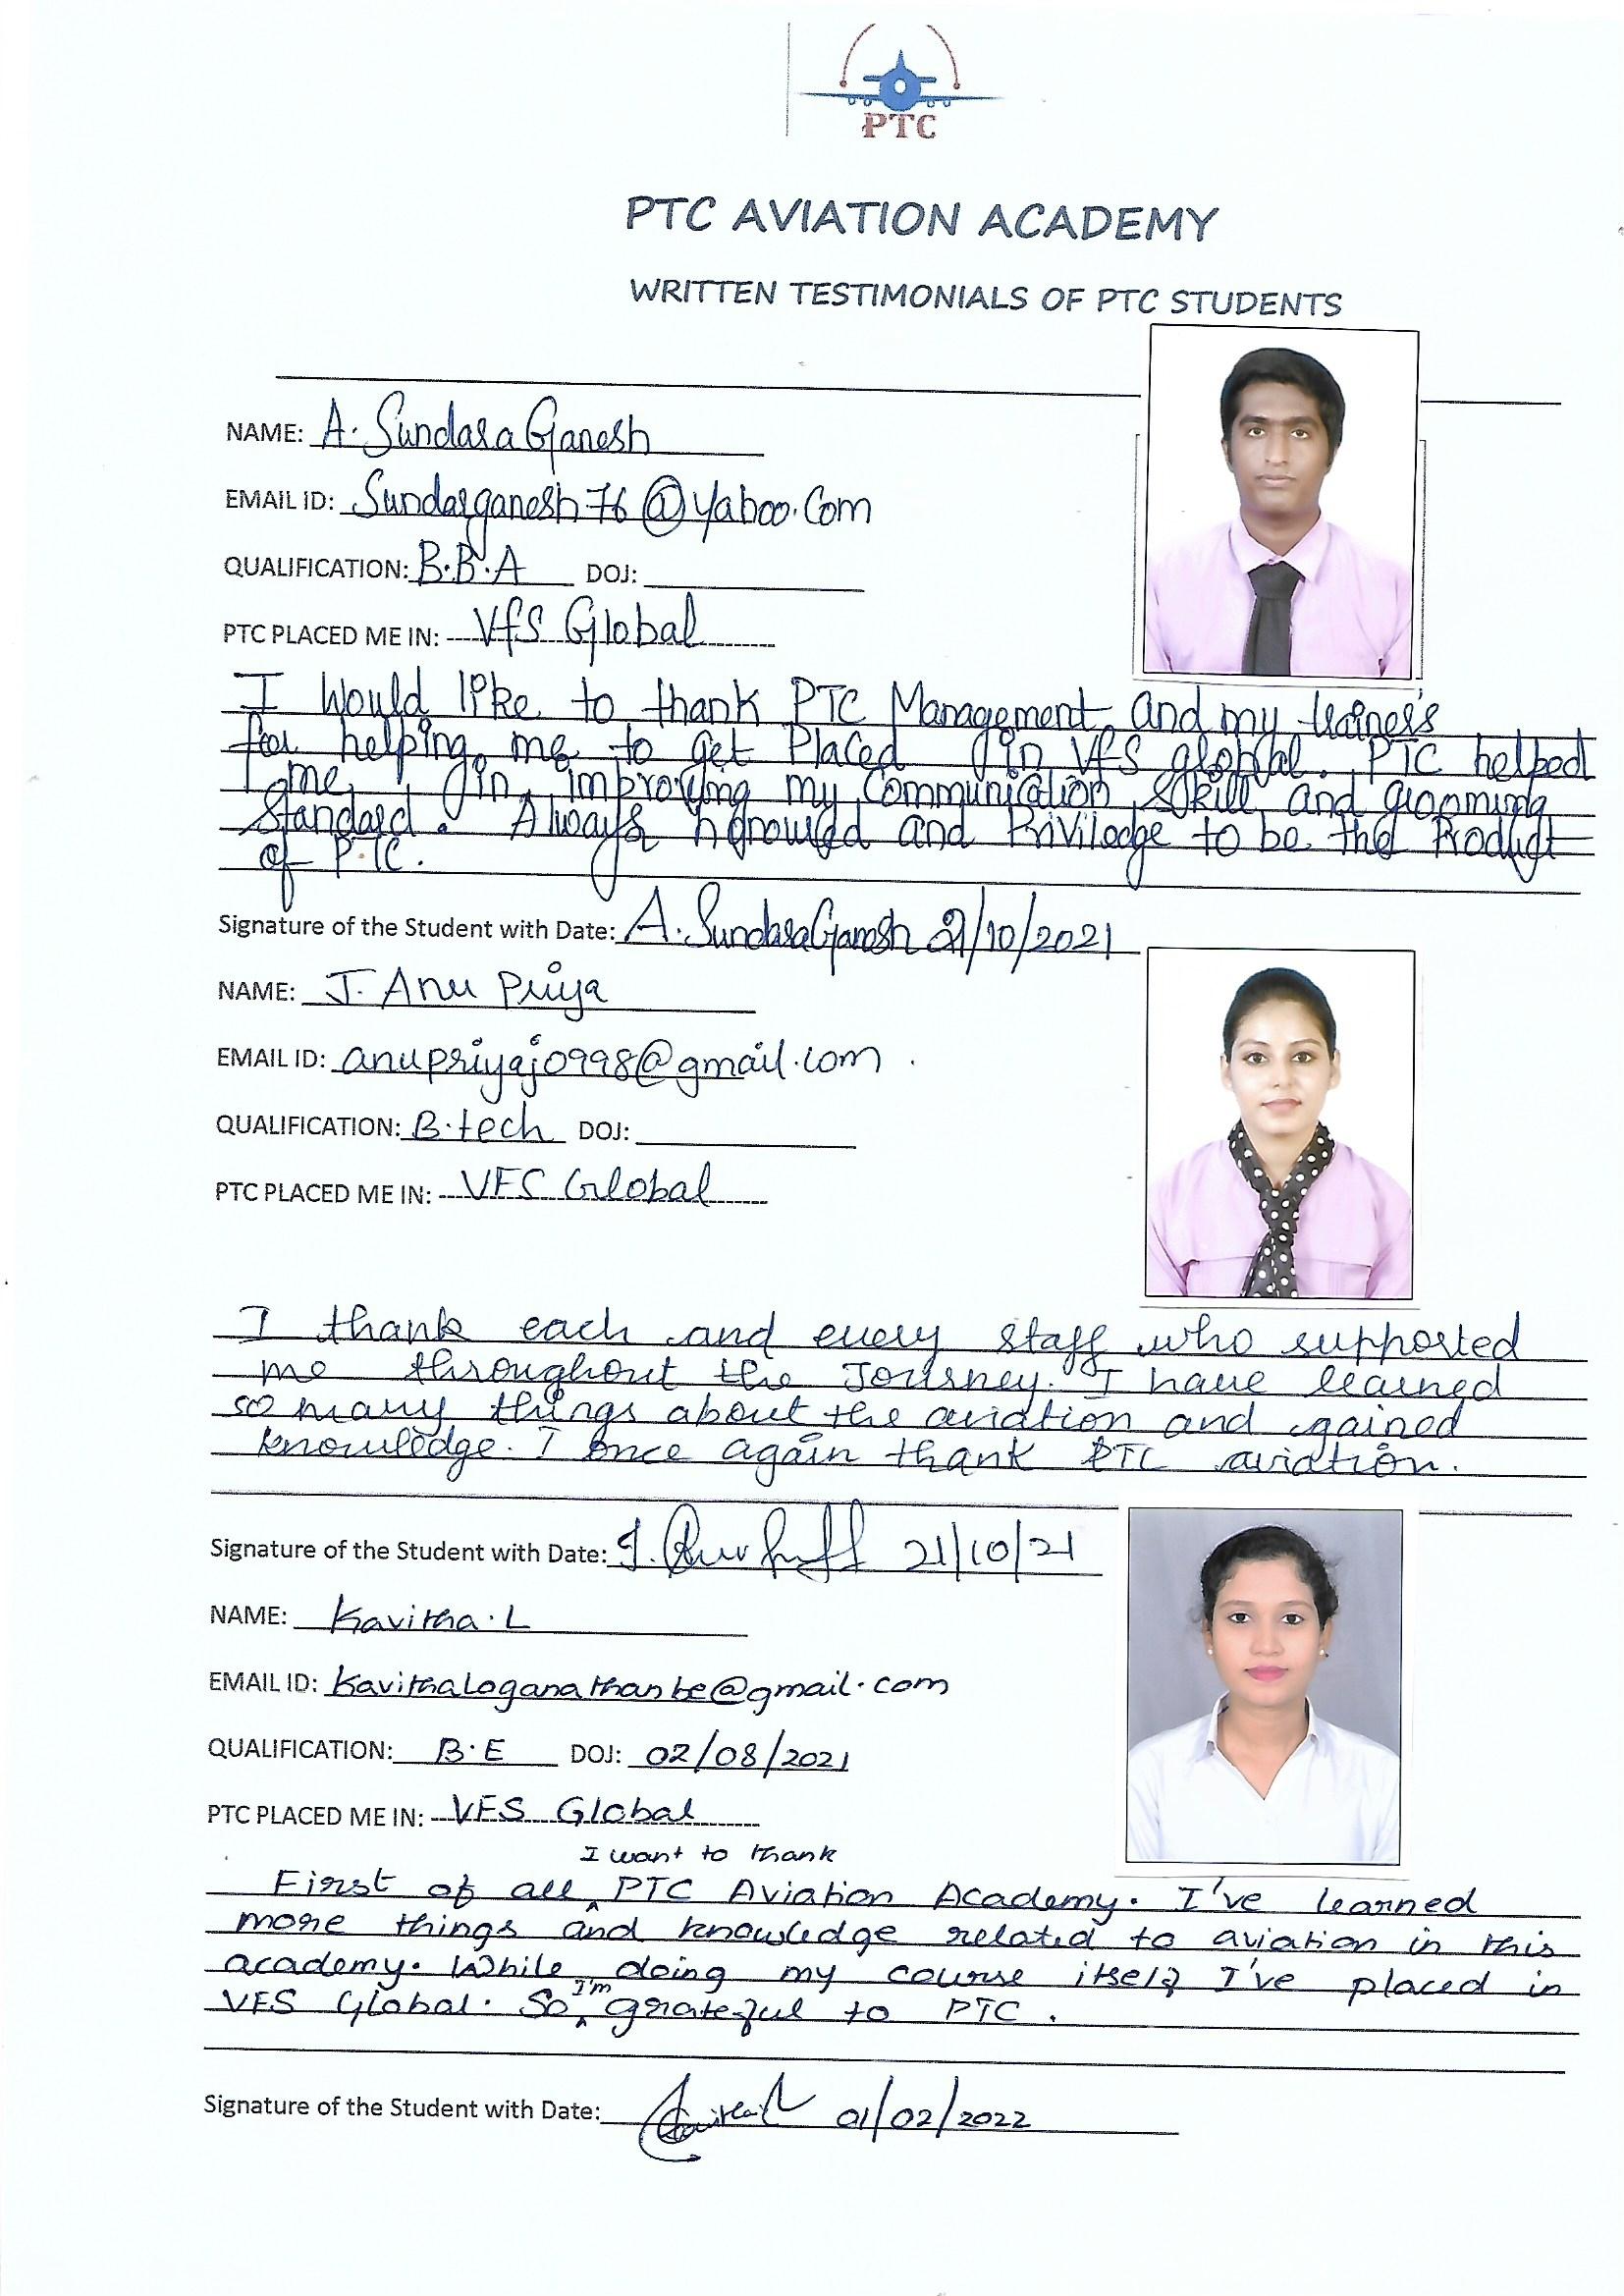 PTC
PTC AVIATION ACADEMY
WRITTEN TESTIMONIALS OF PTC STUDENTS
NAME: A. Sundara Ganesh
EMAIL ID: Sundarganesh76@yahoo.Com
QUALIFICATION: B.B.A DOJ:
PTC PLACED ME IN: VfS Global
I Would like to thank PTC Management and my trainer's
for helping me to get Placed in Vfs global. PTC helped
me in improving my Communication Skill and grooming
Standard. Always honoured and Priviledge to be the Product
of PTC.
Signature of the Student with Date: A. SundaraGanesh 21/10/2021
NAME: J. Anu Priya
EMAIL ID: anupriyaj0998@gmail.com
QUALIFICATION: B.tech DOJ:
PTC PLACED ME IN: VFS Global
I thank each and every staff who supported
me throughout the Journey. I have learned
so many things about the aviation and gained
knowledge. I once again thank PTC aviation.
Signature of the Student with Date: J. 21/10/21
NAME: Kavitha.L
EMAIL ID: kavithaloganathanbe@gmail.com
QUALIFICATION: B.E DOJ: 02/08/2021
PTC PLACED ME IN: VFS Global
I want to thank
First of all PTC Aviation Academy. I've learned
more things and knowledge related to aviation in this
academy. While doing my course itself I've placed in
VFS Global. So I'm grateful to PTC.
Signature of the Student with Date: 01/02/2022